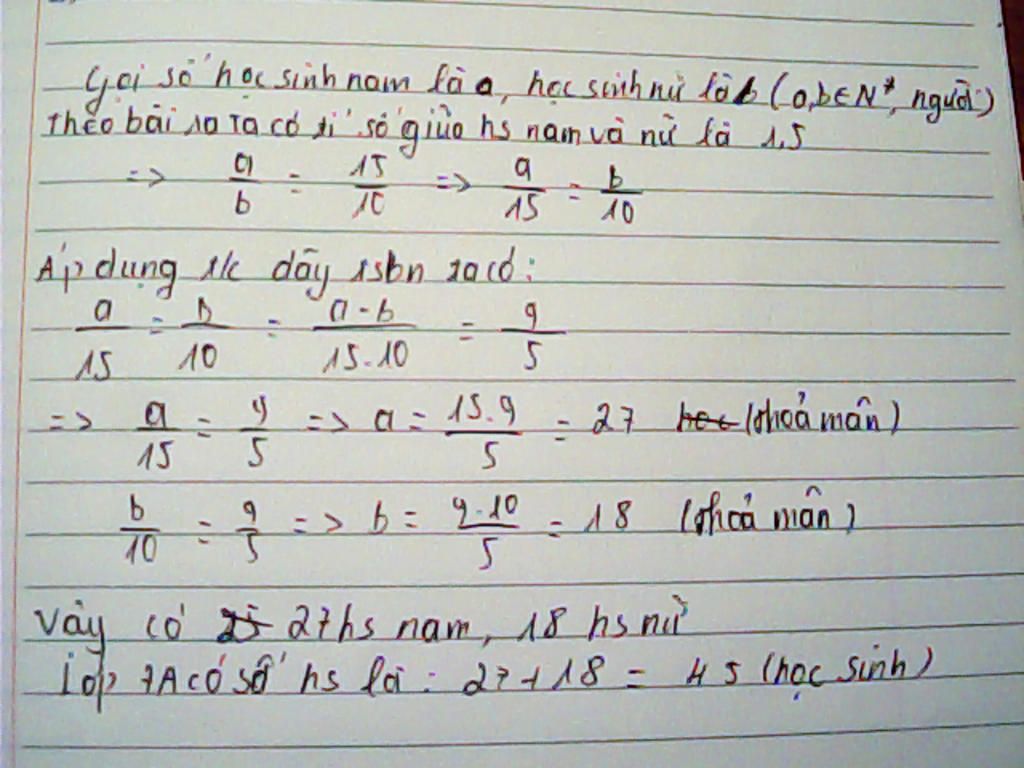 Gọi số học sinh nam là a, học sinh nữ là b (a,b∈N*, người)
Theo bài ra ta có tỉ số giữa hs nam và nữ là 1,5
=> a/b = 15/10 => a/15 = b/10
Áp dụng t/c dãy tsbn ta có:
a/15 = b/10 = a-b/15-10 = 9/5
=> a/15 = 9/5 => a = 15.9/5 = 27 (thoả mãn)
b/10 = 9/5 => b = 9.10/5 = 18 (thoả mãn)
Vậy có 27 hs nam, 18 hs nữ
Lớp 7A có số hs là: 27+18 = 45 (học sinh)